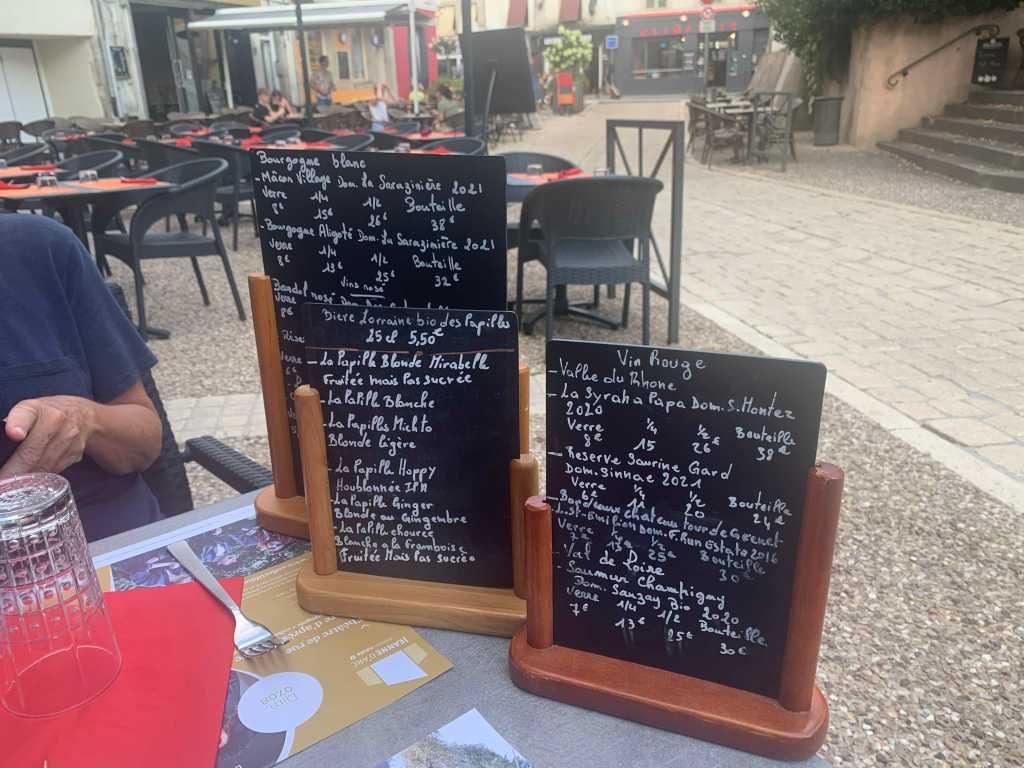 Bourgogne blanc
- Mâcon Village Dom. La Sarazinière 2021
Verre 1/4 1/2 Bouteille
8€ 15€ 26€ 38€
- Bourgogne Aligoté Dom. La Sarazinière 2021
Verre 1/4 1/2 Bouteille
8€ 13€ 25€ 32€
Vins rosé
Bandol rosé Dom
Verre
8€
Bière Lorraine bio des Papilles
25 cl 5,50€
- La Papille Blonde Mirabelle
Fruitée mais Pas sucrée
- La Papille Blanche
- La Papilles Michto
Blonde légère
- La Papille Hoppy
Houblonnée IPA
- La Papille Ginger
Blonde au Gingembre
- La Papille chourée
Blanche à la Framboise
Fruitée Mais Pas sucrée
Vin Rouge
- Vallée du Rhone
- La Syrah a Papa Dom. S. Montez
2020
Verre 1/4 1/2 Bouteille
8€ 15 26€ 38€
- Reserve Saurine Gard
Dom. Sinnae 2021
Verre 1/4 1/2 Bouteille
6€ 11 20 24€
- Bordeaux Chateau Tour de
L. St-Emilion Dom. Estate 2016
Verre 1/4 1/2 Bouteille
7€ 13€ 25€ 30€
- Val de Loire
- Saumur Champigny
Dom. Sanzay Bio 2020
Verre 1/4 1/2 Bouteille
7€ 13€ 25€ 30€
Théâtre de rue
JEANNE D'ARC
Dim.
07.08